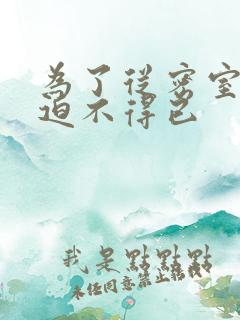 為了從密室
迫不得已
我是點點點
未经同意禁止转载